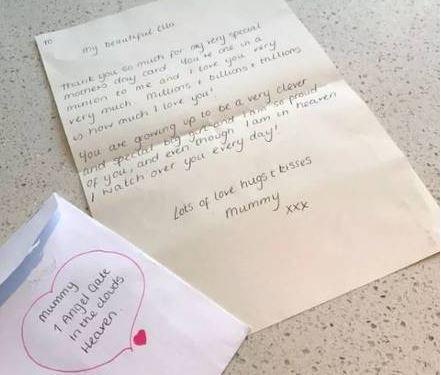 To
My beautiful Ella
Thank you so much for my very special
mothers day card. You're one in a
million to me and I love you very
very much. Millions & billions & trillions
is how much I love you!
You are growing up to be a very clever
and special big girl and I am so proud
of you, and even though I am in heaven
I watch over you every day!
Lots of love hugs & kisses
Mummy xxx
Mummy
1 Angel Gate
In the clouds
Heaven